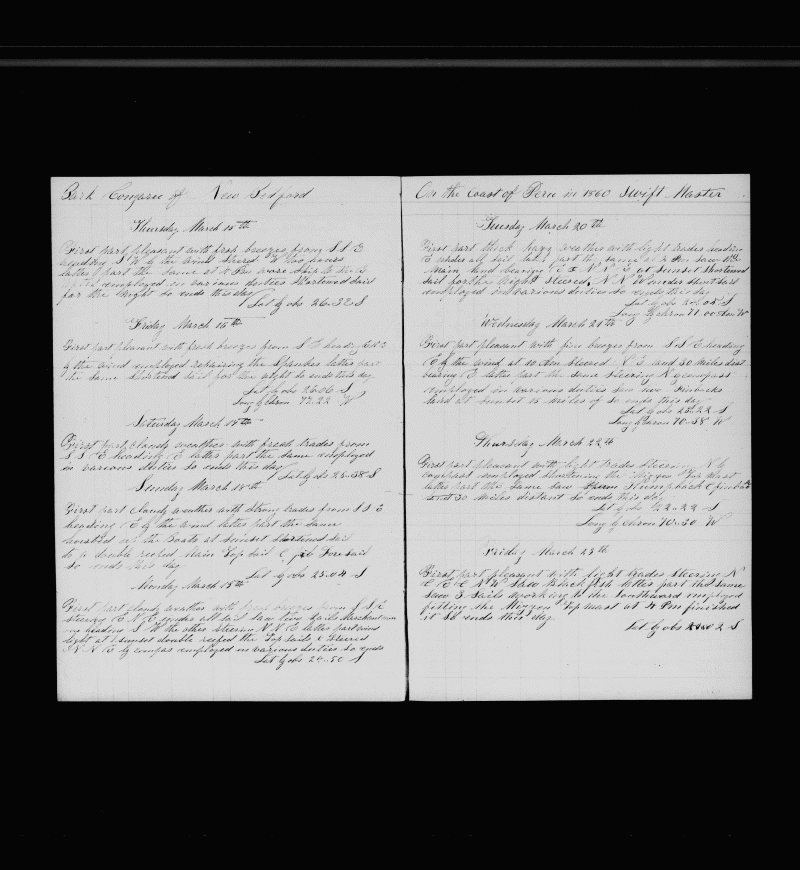 Bark Congaree of New Bedford
Thursday March 15th
First part pleasant with fresh breezes from S S E
heading S W by the wind
latter part the same at Pm wore Ship to the E
employed in various duties Shortened Sail
for the Night so ends this day
Lat by obs 26-32 S
Friday March 16th
First part pleasant with fresh breezes from S E heading
by the wind employed repairing the Spanker latter part
the same Shortened Sail for the night so ends this day
Lat by obs 26-06 S
Long by Chron 72-22 W
Saturday March 17th
First part cloudy weather with fresh trades from
S S E heading E latter part the same employed
in various duties So ends this day Lat by obs 25-38 S
Sunday March 18th
First part cloudy weather with Strong trades from S S E
heading E by the wind latter part the same
hoisted up the Boats at Sunset Shortened Sail
to a double reefed Main Top Sail & jib Fore sail
So ends this day
Lat by obs 25-04 S
Monday March 19th
First part cloudy weather with fresh breezes from S S E
steering E N E under all Sail Saw two Sails Merchantmen
one heading S W the other steering N N E latter part
light at Sunset double reefed the Top Sails & Steered
N N E by compas employed in various duties So ends
Lat by obs 24-50 S
On the Coast of Peru in 1860 Swift Master
Tuesday March 20th
First part thick hazy weather with light trades heading
E under all Sail latter part the same at 2 Pm Saw the
Main land bearing E N E at Sunset Shortened
Sail for the Night Steered N N W under Short Sail
employed in various duties so ends this day
Lat by obs 24-05 S
Long by Chron 71-00 W
Wednesday March 21st
First part pleasant with fine breezes from S S E heading
E by the wind at 10 Am Steered N E land 30 Miles dist
bearing E latter part the Same Steering N by compass
employed in various duties Saw two Finbacks
land at Sunset 15 miles off So ends this day
Lat by obs 23-22 S
Long by Chron 70-58 W
Thursday March 22d
First part pleasant with light trades Steering N by
compass employed Shortening the Mizzen Top Mast
latter part the Same Saw Humpback & finbacks
30 miles distant So ends this day
Lat by obs 22-22 S
Long by Chron 70-50 W
Friday March 23th
First part pleasant with light trades Steering N
Saw Blackfish latter part the Same
Saw 3 Sails working to the Southward employed
fitting the Mizzen Top Mast at 4 Pm finished
it So ends this day
Lat by obs S